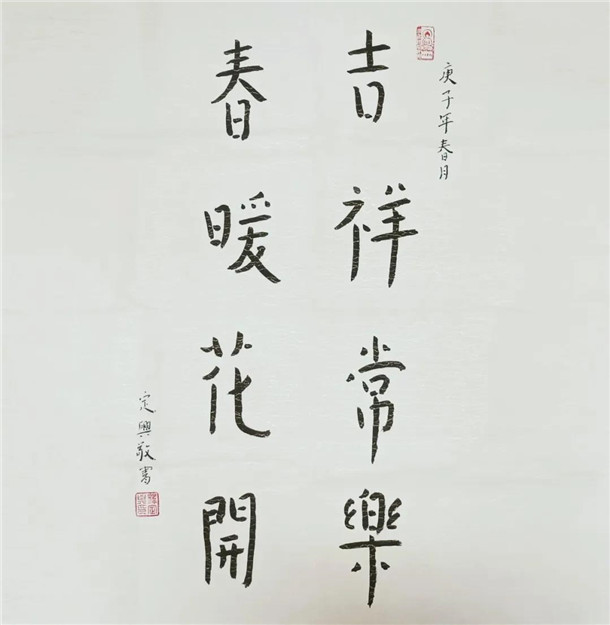 庚子年春月
吉祥常樂
春暖花開
定興敬書